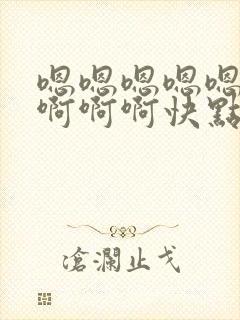 嗯嗯嗯嗯嗯
啊啊啊快點
滄瀾止戈